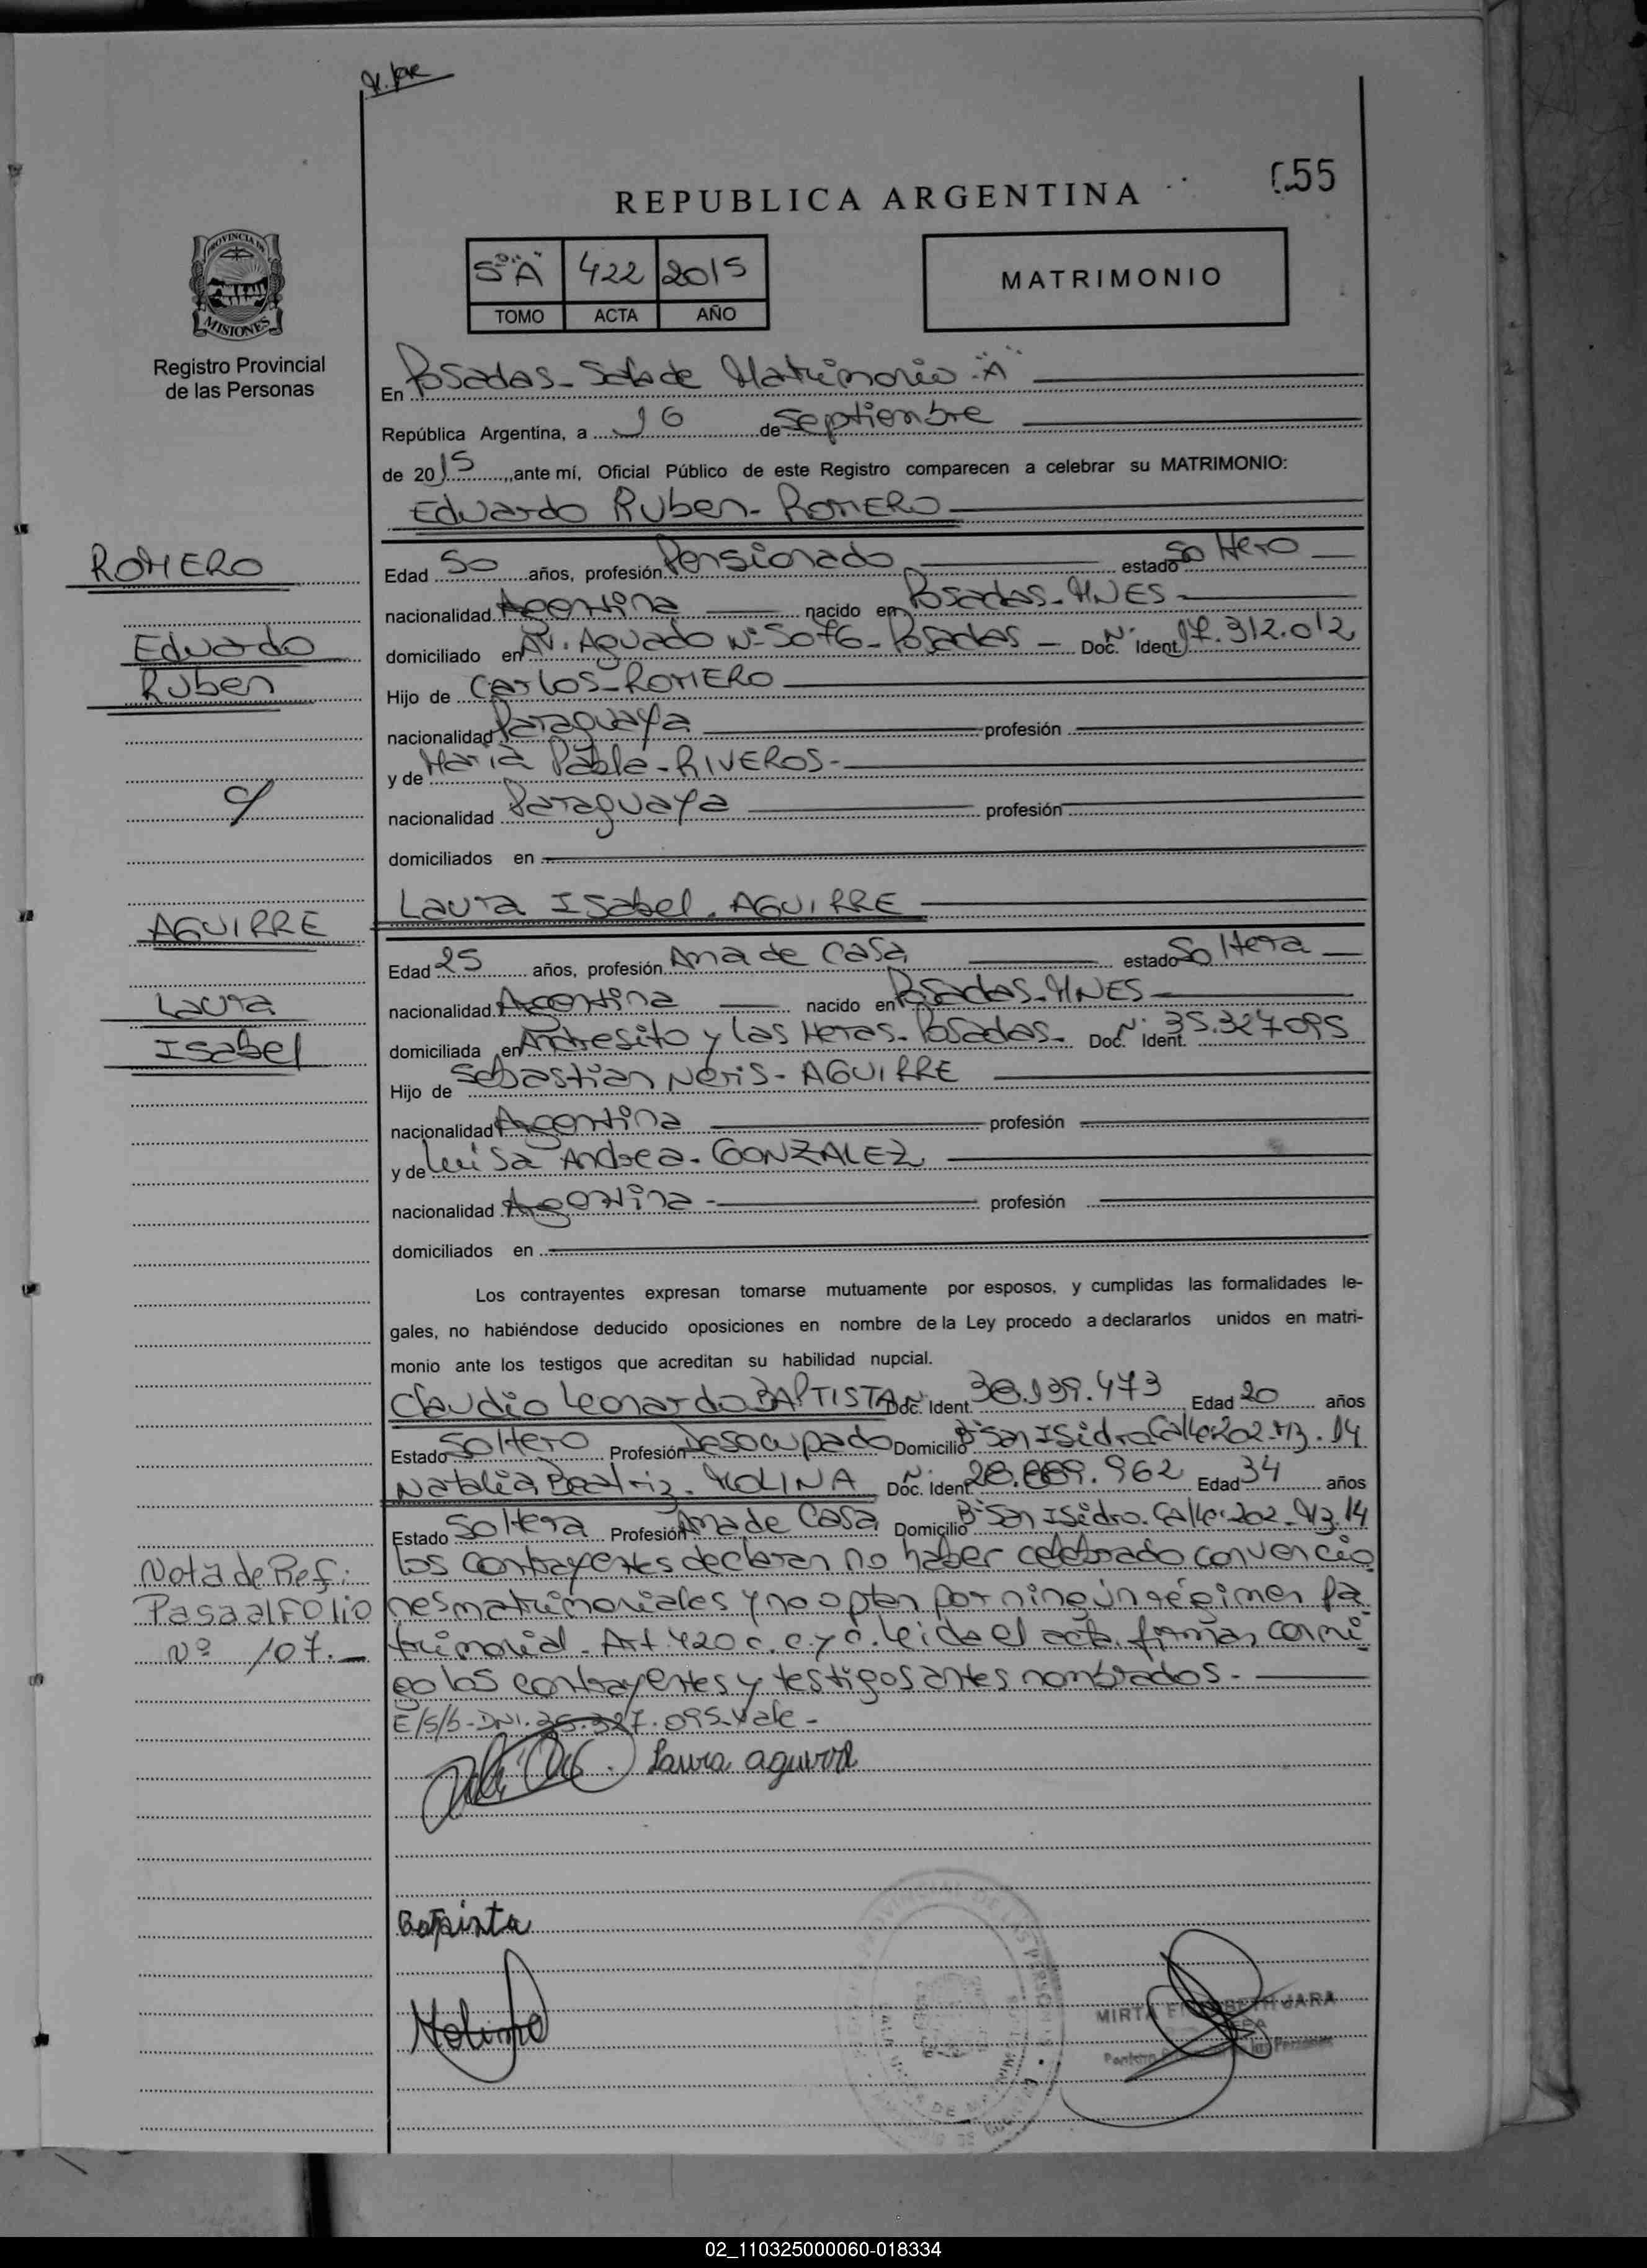 055
REPUBLICA ARGENTINA
5º "A" 422 2015
TOMO ACTA AÑO
MATRIMONIO
PROVINCIA DE
MISIONES
Registro Provincial
de las Personas
En Posadas - Sala de Matrimonio - "A"
República Argentina, a 16 de Septiembre
de 2015, ante mí, Oficial Público de este Registro comparecen a celebrar su MATRIMONIO:
Eduardo Ruben - ROMERO
ROMERO
Eduardo
Ruben
c/
AGUIRRE
Laura
Isabel
Edad 50 años, profesión Pensionado estado Soltero
nacionalidad Argentina nacido en Posadas - MNES -
domiciliado en Av. Aguado Nº 5076 - Posadas - Doc. Nº Ident. 17.312.012
Hijo de Carlos - ROMERO
nacionalidad Paraguaya profesión
y de Maria Pabla - RIVEROS -
nacionalidad Paraguaya profesión
domiciliados en
Laura Isabel - AGUIRRE
Edad 25 años, profesión Ama de Casa estado Soltera
nacionalidad Argentina nacido en Posadas - MNES -
domiciliada en Andresito y las Heras - Posadas - Doc. Nº Ident. 35.327.095
Hijo de Sebastian Neris - AGUIRRE
nacionalidad Argentina profesión
y de Luisa Andrea - GONZALEZ
nacionalidad Argentina - profesión
domiciliados en
Los contrayentes expresan tomarse mutuamente por esposos, y cumplidas las formalidades le-
gales, no habiéndose deducido oposiciones en nombre de la Ley procedo a declararlos unidos en matri-
monio ante los testigos que acreditan su habilidad nupcial.
Claudio Leonardo BAPTISTA Doc. Nº Ident. 38.139.473 Edad 20 años
Estado Soltero Profesión Desocupado Domicilio Bº San Isidro Calle 202 - Mz. 14
Natalia Beatriz - MOLINA Doc. Nº Ident. 28.889.962 Edad 34 años
Estado Soltera Profesión Ama de Casa Domicilio Bº San Isidro - Calle 202 - Mz. 14
los contrayentes declaran no haber celebrado convencio
nes matrimoniales y no optan por ningún régimen pa
trimonial - Art. 420 c. c. y c. leida el acta firman conmi
go los contrayentes y testigos antes nombrados. -
E/s/b - DNI. 35.327.095 - Vale -
Nota de Ref:
Pasa al FOLIO
Nº 107. -
Laura aguirre
Baptista
Molina
MIRTA JARA
02_110325000060-018334